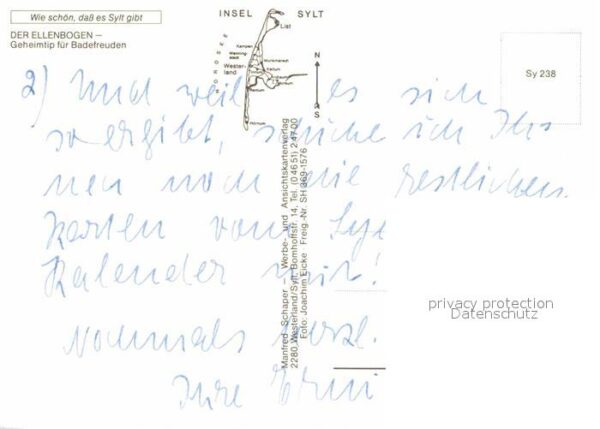 Wie schön, daß es Sylt gibt
DER ELLENBOGEN –
Geheimtip für Badefreuden
INSEL SYLT
NORDSEE
List
Kampen
Wester-
land
Keitum
Hörnum
N
S
Sy 238
2) Und weil es sich
so ergibt, schicke ich Ih-
nen noch die restlichen
Karten vom Syl
Kalender mit!
Nochmals herzl.
Ihre Erni
Manfred Schaper – Werbe- und Ansichtskartenverlag
2280 Westerland/Sylt, Bomhoffstr. 14, Tel. (0 46 51) 2 47 00
Foto: Joachim Eicke Freig.-Nr. SH 369-1576
privacy protection
Datenschutz